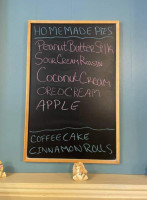 HOMEMADE PIES
PEANUT BUTTER SILK
SOUR CREAM RAISIN
COCONUT CREAM
OREO CREAM
APPLE
COFFEE CAKE
CINNAMON ROLLS